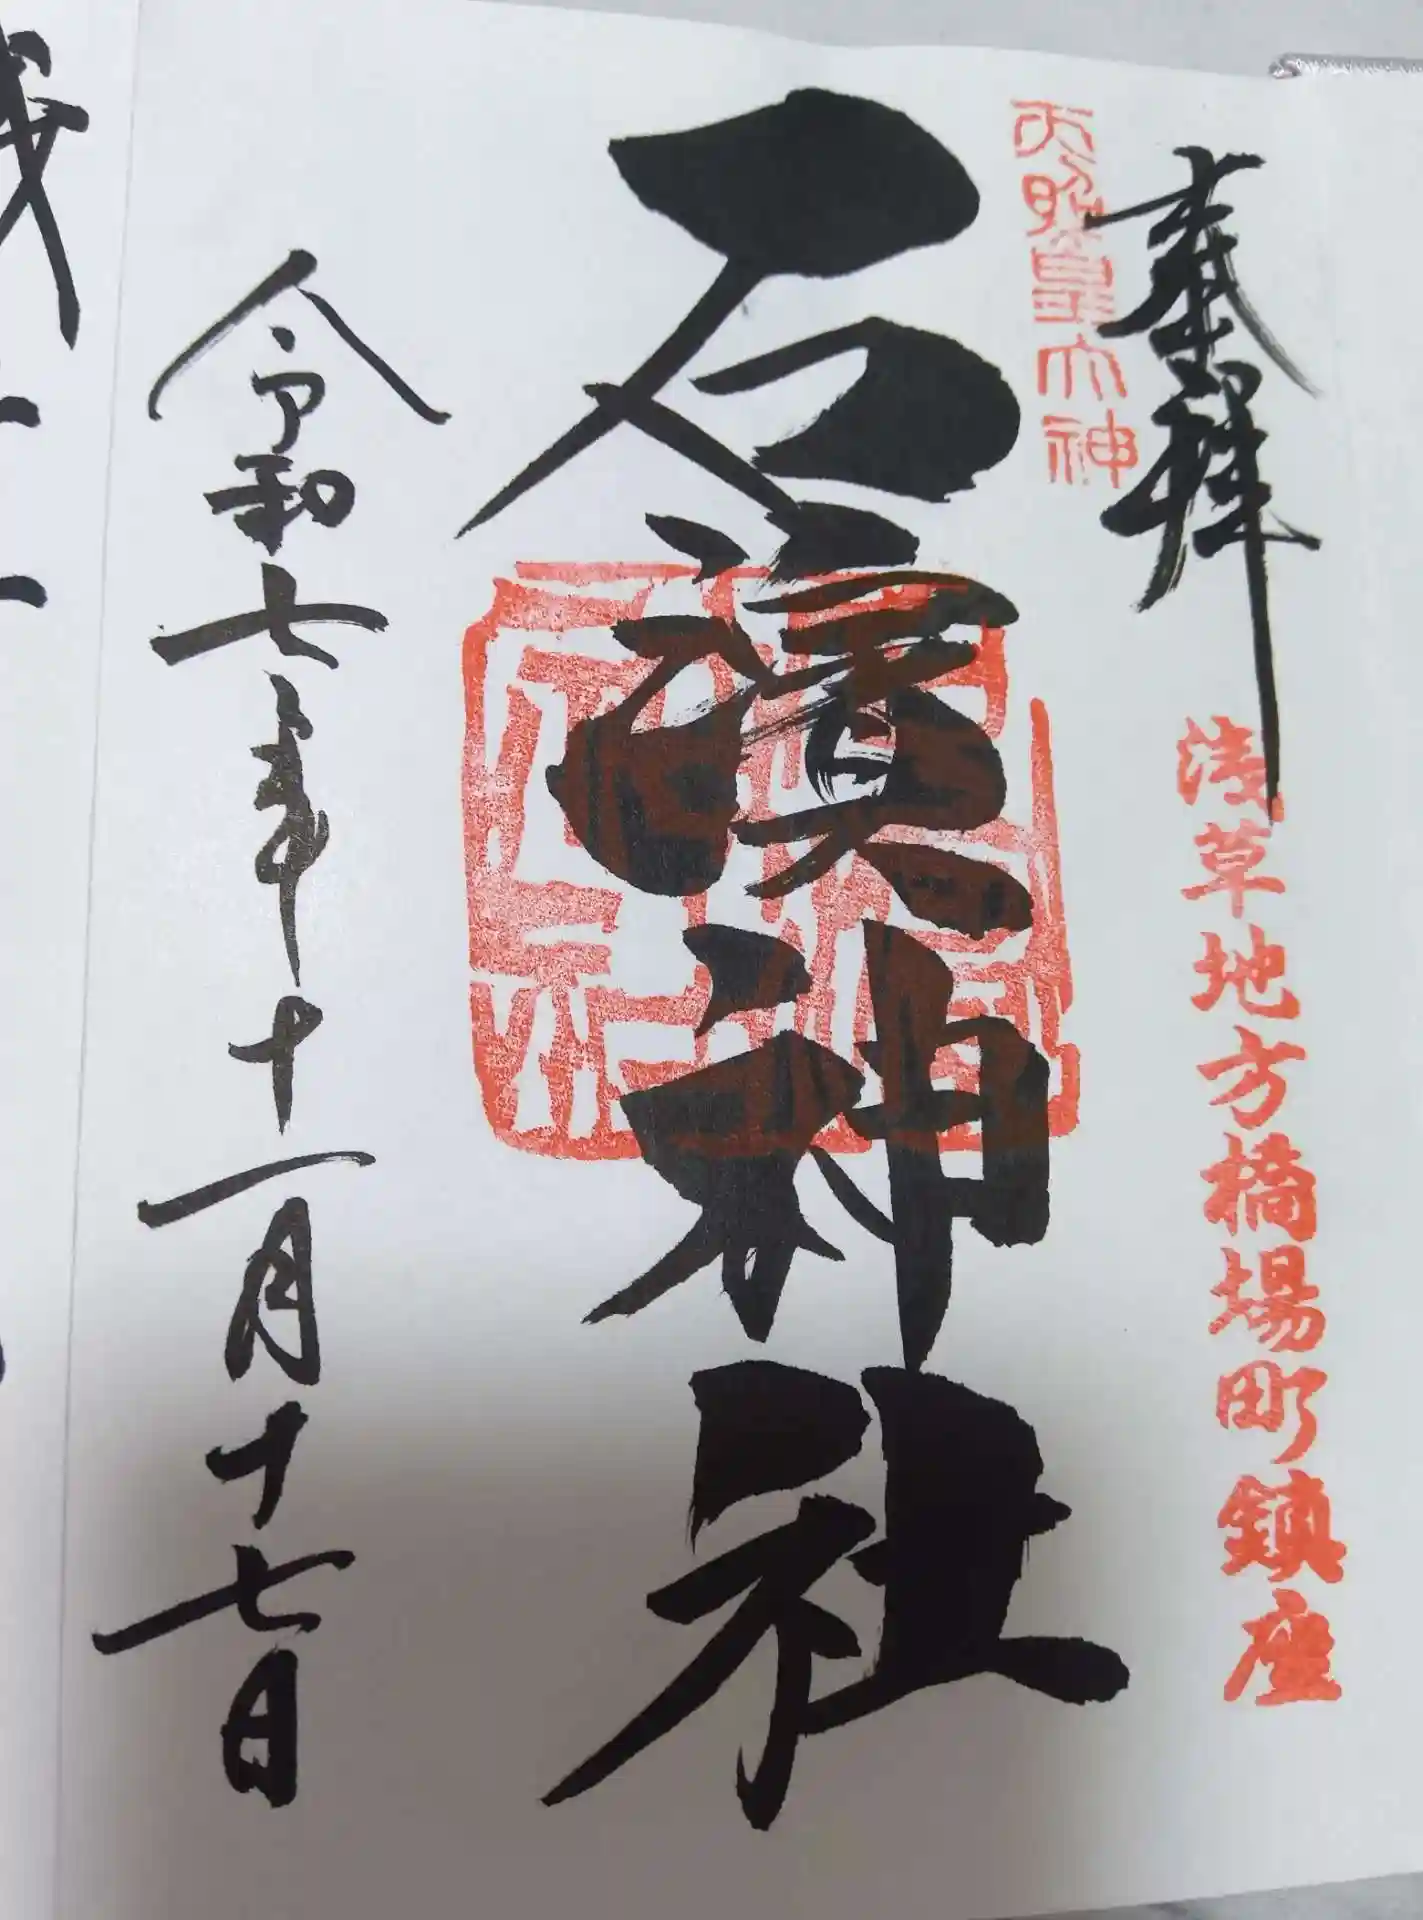 奉拝
浅草地方橋場町鎮座
天照皇大神
石濱神社
令和七年十一月十七日